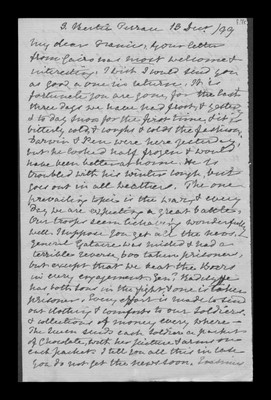 Terrace 15 Dec. /99
My dear Francis, your letter
from Cairo was most welcome &
interesting. I wish I could send you
as good a one in return. It is
fortunate you are gone, for the last
three days we have had frost, & yesterday
& to day snow for the first time, it is
bitterly cold, & coughs & colds the fashion.
& Pen were here yesterday
but he looked half frozen & would
have been better at home. He is
troubled with his winter cough, but
goes out in all weathers. The one
prevailing topic is the war, & every
day we are expecting a great battle.
Our troops seem behaving wonderfully
well. I suppose you get all the news.
General Gatacre was misled & had a
terrible reverse, 600 taken prisoners,
but except that we beat the Boers
in every engagement. Genl.
has both sons in the fight, & one is taken
prisoner. Every effort is made to send
out clothing & comforts to our soldiers.
& collections of money every where.
The Queen sends each soldier a packet
of Chocolate, with her picture & arms on
each packet. I tell you all this in case
you do not get the news soon.